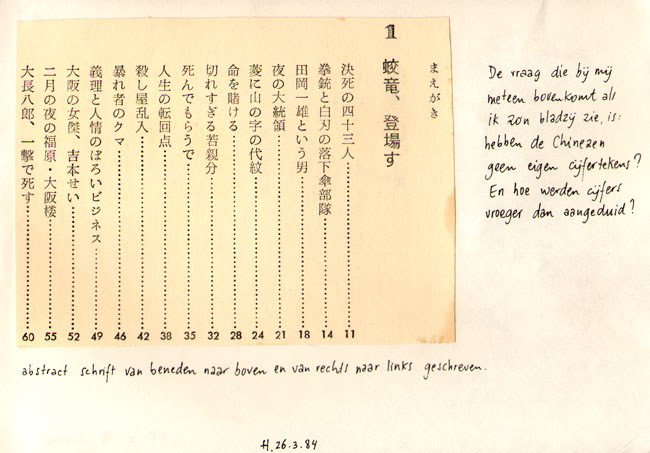 まえがき
1 蛟竜、登場す
決死の四十三人 11
拳銃と白刃の落下傘部隊 14
田岡一雄という男 18
夜の大統領 21
菱に山の字の代紋 24
命を賭ける 28
切れすぎる若親分 32
死んでもらうで 35
人生の転回点 38
殺し屋乱入 42
暴れ者のクマ 46
義理と人情のぼろいビジネス 49
大阪の女傑、吉本せい 52
二月の夜の福原・大阪楼 55
大長八郎、一撃で死す 60
De vraag die bij mij
meteen bovenkomt als
ik zo'n bladzij zie, is:
hebben de Chinezen
geen eigen cijfertekens?
En hoe werden cijfers
vroeger dan aangeduid?
abstract schrift van beneden naar boven en van rechts naar links geschreven.
H. 26.3.84